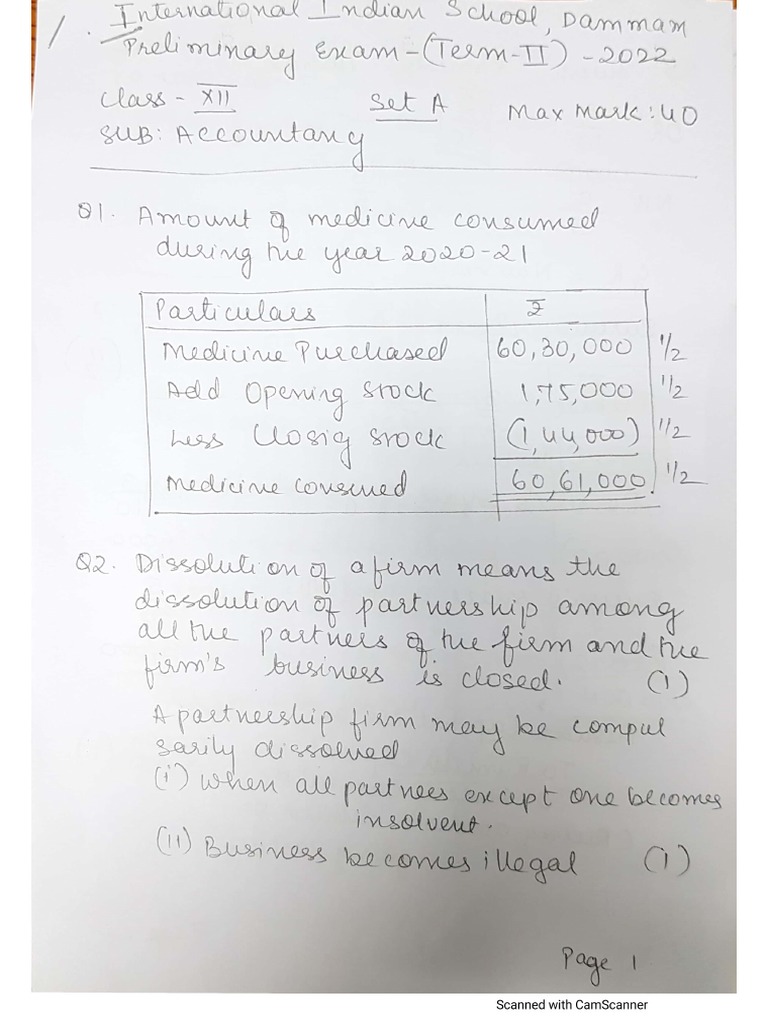 1. International Indian School, Dammam
Preliminary Exam - (Term-II) - 2022
Class - XII Set A Max Mark: 40
SUB: Accountancy
Q1. Amount of medicine consumed
during the year 2020-21
Particulars ₹
Medicine Purchased 60,30,000 1/2
Add Opening Stock 1,75,000 1/2
Less Closig Stock (1,44,000) 1/2
Medicine Consumed 60,61,000 1/2
Q2. Dissolution of a firm means the
dissolution of partnership among
all the partners of the firm and the
firm's business is closed. (1)
A partnership firm may be compul
sarily dissolved
(i) When all partnees except one becomes
insolvent.
(ii) Business becomes illegal (1)
Page 1
Scanned with CamScanner